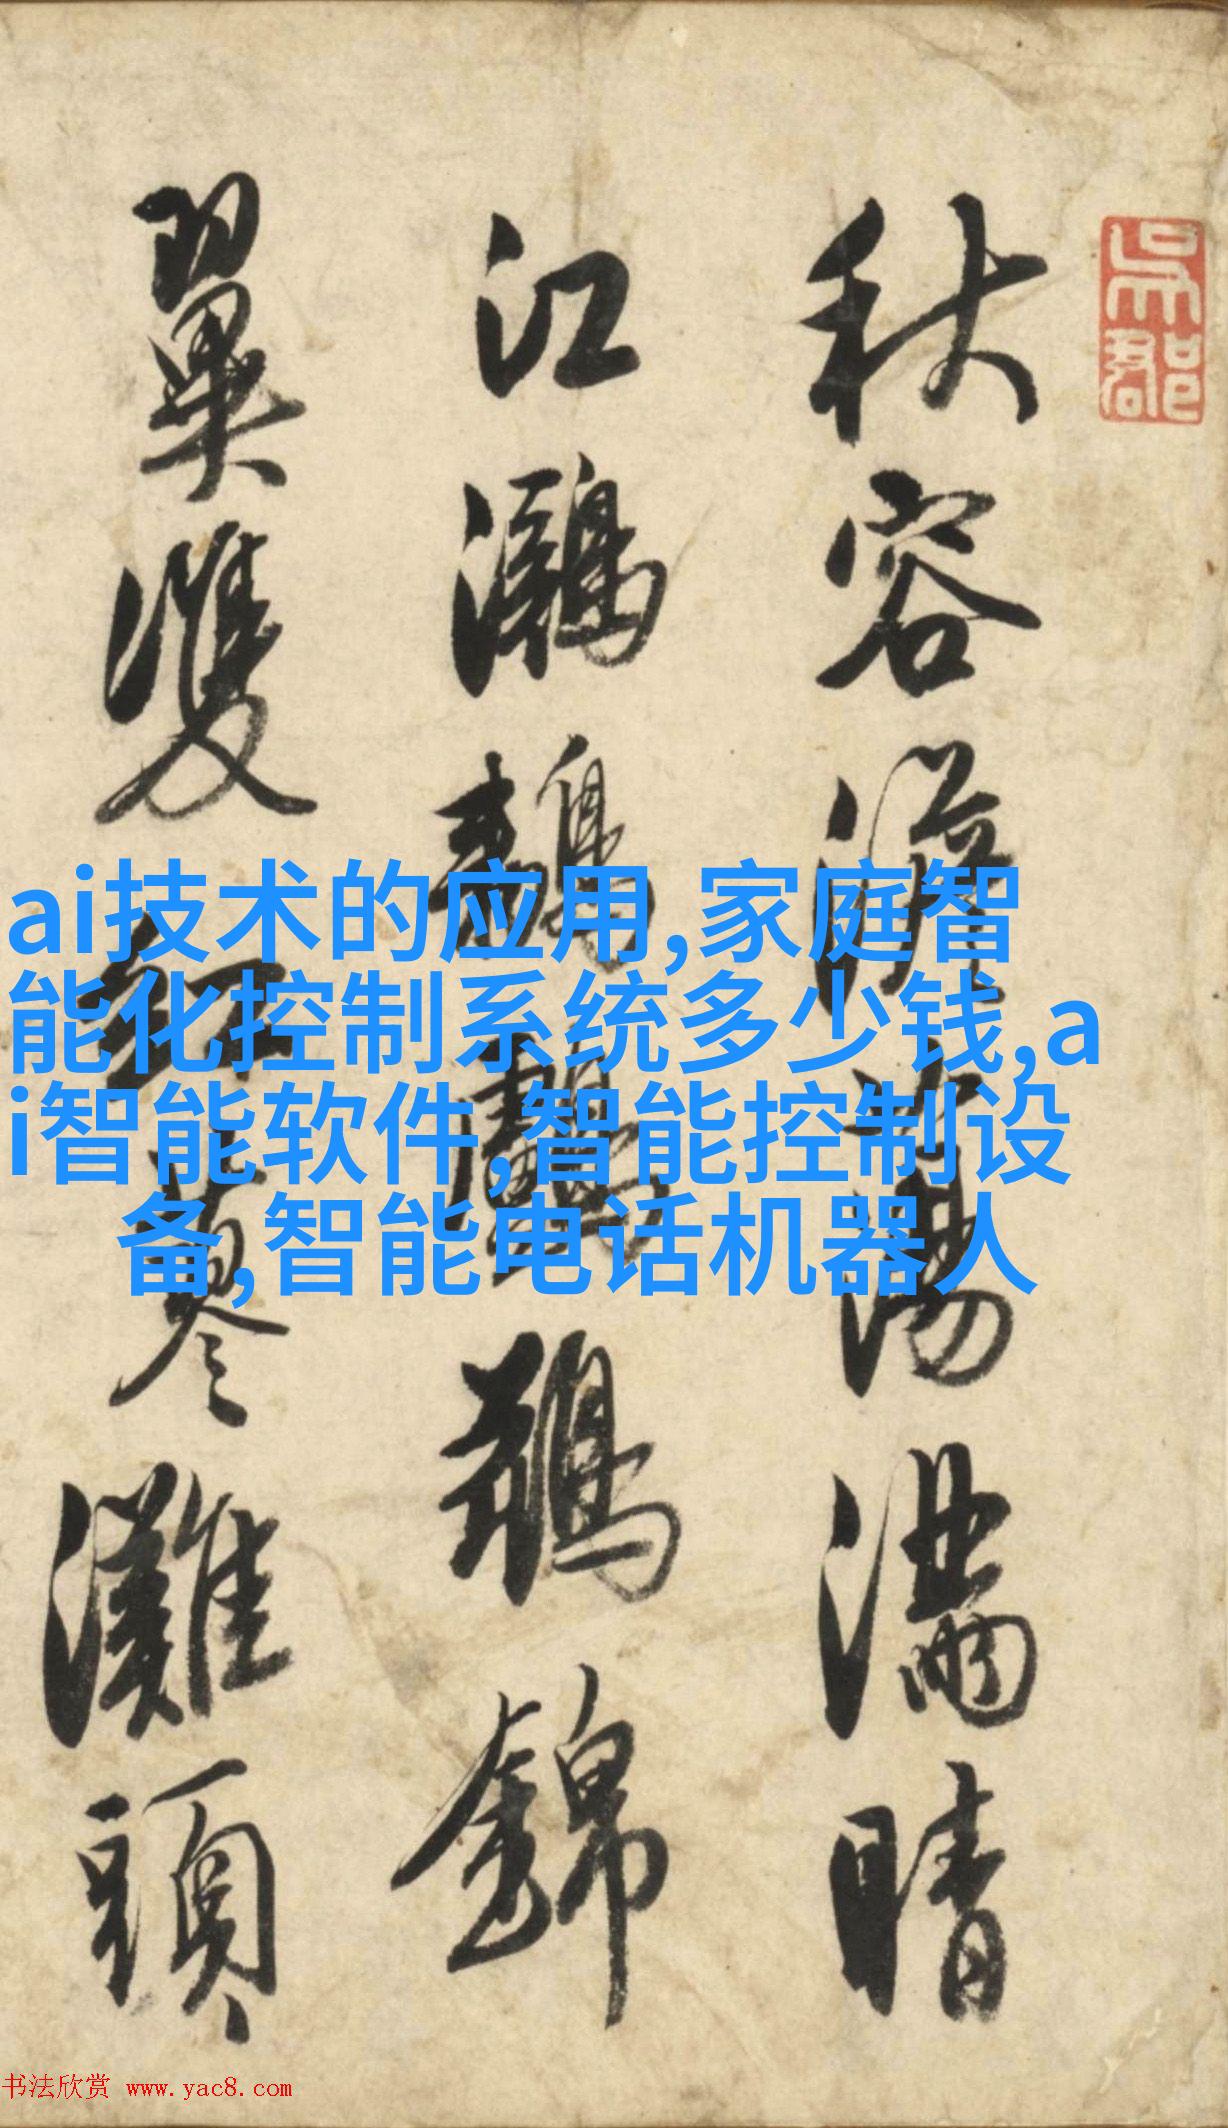 吳郡
秋容蕩滿晴
江鸂鶒鸕鶿錦
翼雙紅蓼灘頭
ai技术的应用,家庭智
能化控制系统多少钱,a
i智能软件,智能控制设
备,智能电话机器人
书法欣赏 www.yac8.com